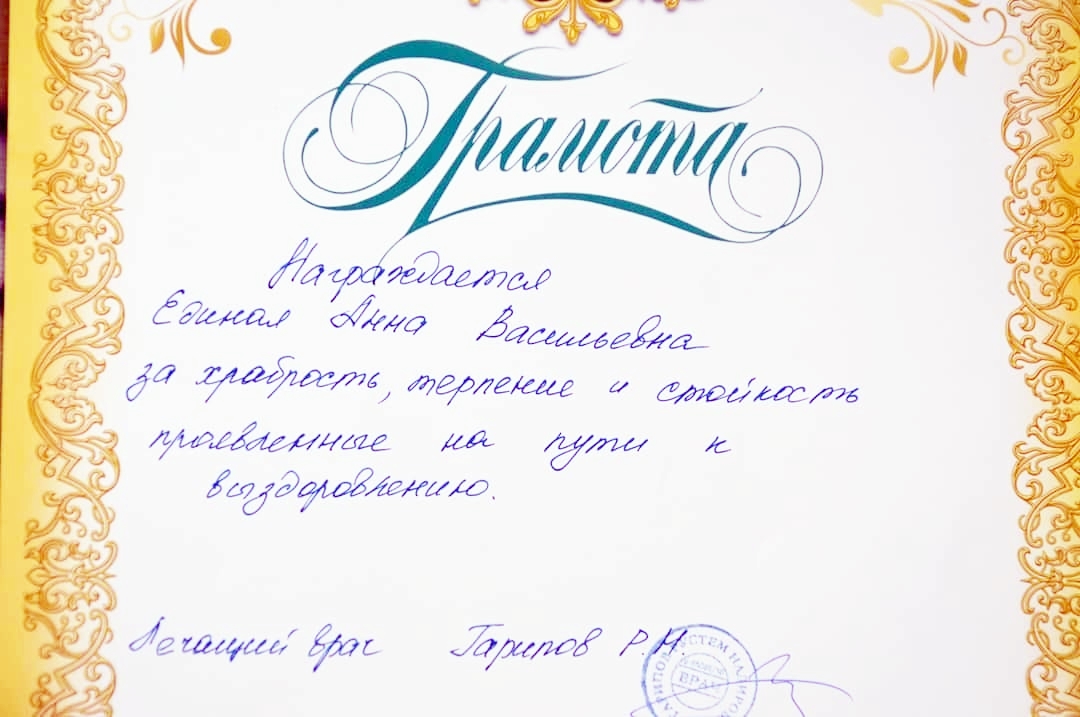 Грамота
Награждается
Единая Анна Васильевна
за храбрость, терпение и стойкость
проявленные на пути к
выздоровлению.
Лечащий врач Гарипов Р.Н.
ВРАЧ